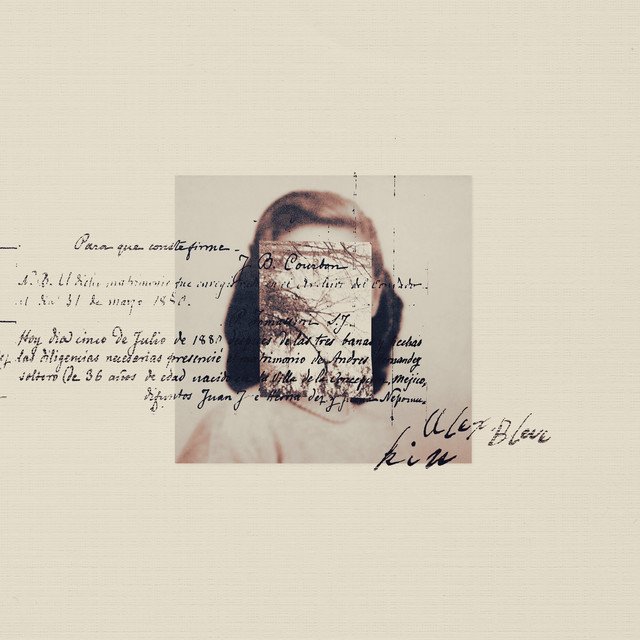 Para que conste firmo -
J. B. Courbon
N. B. El dicho matrimonio fue en el Archivo del
el dia 31 de marzo 188
S. J.
Hoy dia cinco de Julio de 188 despues de las tres banas hechas
las diligencias necesarias presencié matrimonio de Andres
soltero de 36 años de edad nacido Villa de la Concepcion, Mejico,
difuntos Juan J. Nepomu.
Alex Bleve
kin